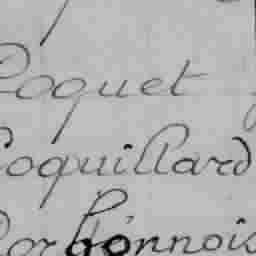 Coquet
Coquillard
Corbonnois